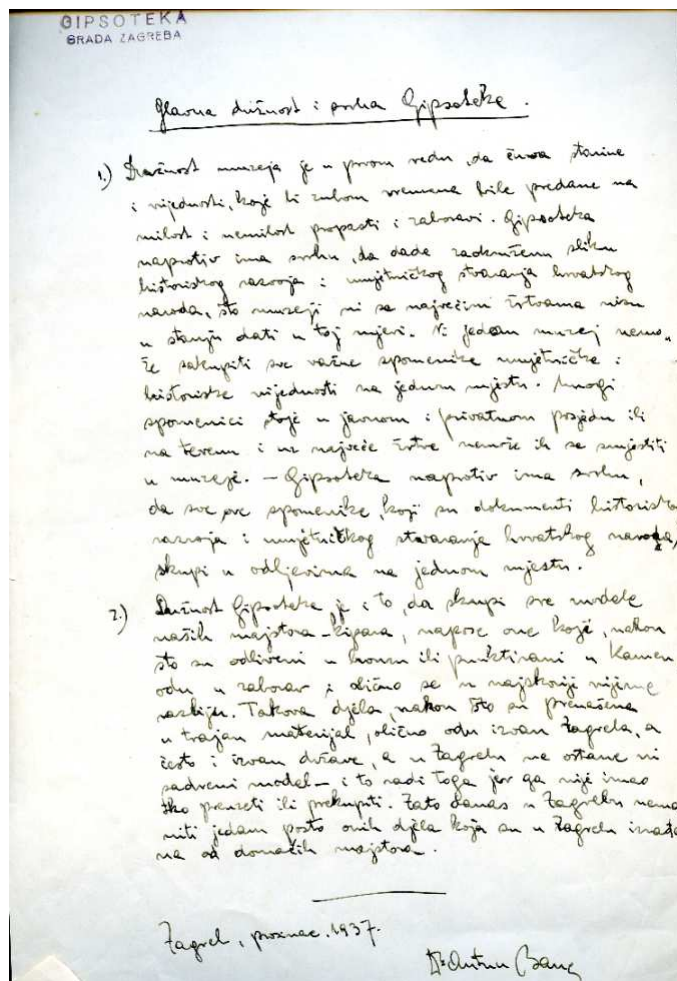 GIPSOTEKA
GRADA ZAGREBA
Glavna dužnost i svrha Gipsoteke.
1.) Dužnost muzeja je u prvom redu, da čuva starine
i vrijednosti, koje bi zubom vremena bile predane na
milost i nemilost propasti i zaboravi. Gipsoteka
naprotiv ima svrhu, da dade zaokruženu sliku
historiskog razvoja i umjetničkog stvaranja hrvatskog
naroda, što muzeji ni sa najvećim žrtvama nisu
u stanju dati u toj mjeri. Ni jedan muzej nemo-
že sakupiti sve važne spomenike umjetničke i
historiske vrijednosti na jednom mjestu. Mnogi
spomenici stoje u javnom i privatnom posjedu ili
na terenu i uz najveće žrtve nemože ih se smjestiti
u muzeje. — Gipsoteka naprotiv ima svrhu,
da sve ove spomenike, koji su dokumenti historisko
razvoja i umjetničkog stvaranja hrvatskog naroda,
skupi u odljevima na jednom mjestu.
2.) Dužnost Gipsoteke je i to, da skupi sve modele
naših majstora-kipara, napose one koje, nakon
što su odliveni u broncu ili punktirani u kamen
odu u zaborav i obično se u najskorije vrijeme
razbiju. Takova djela, nakon što su prenašena
u trajan materijal, obično odu izvan Zagreba, a
često i izvan države, a u Zagrebu ne ostane ni
sadreni model — i to radi toga jer ga nije imao
tko preuzeti ili prekupiti. Zato danas u Zagrebu nema
niti jedan posto onih djela koja su u Zagrebu izrađe
na od domaćih majstora.
Zagreb, prosinac. 1937.
Dr Antun Bauer